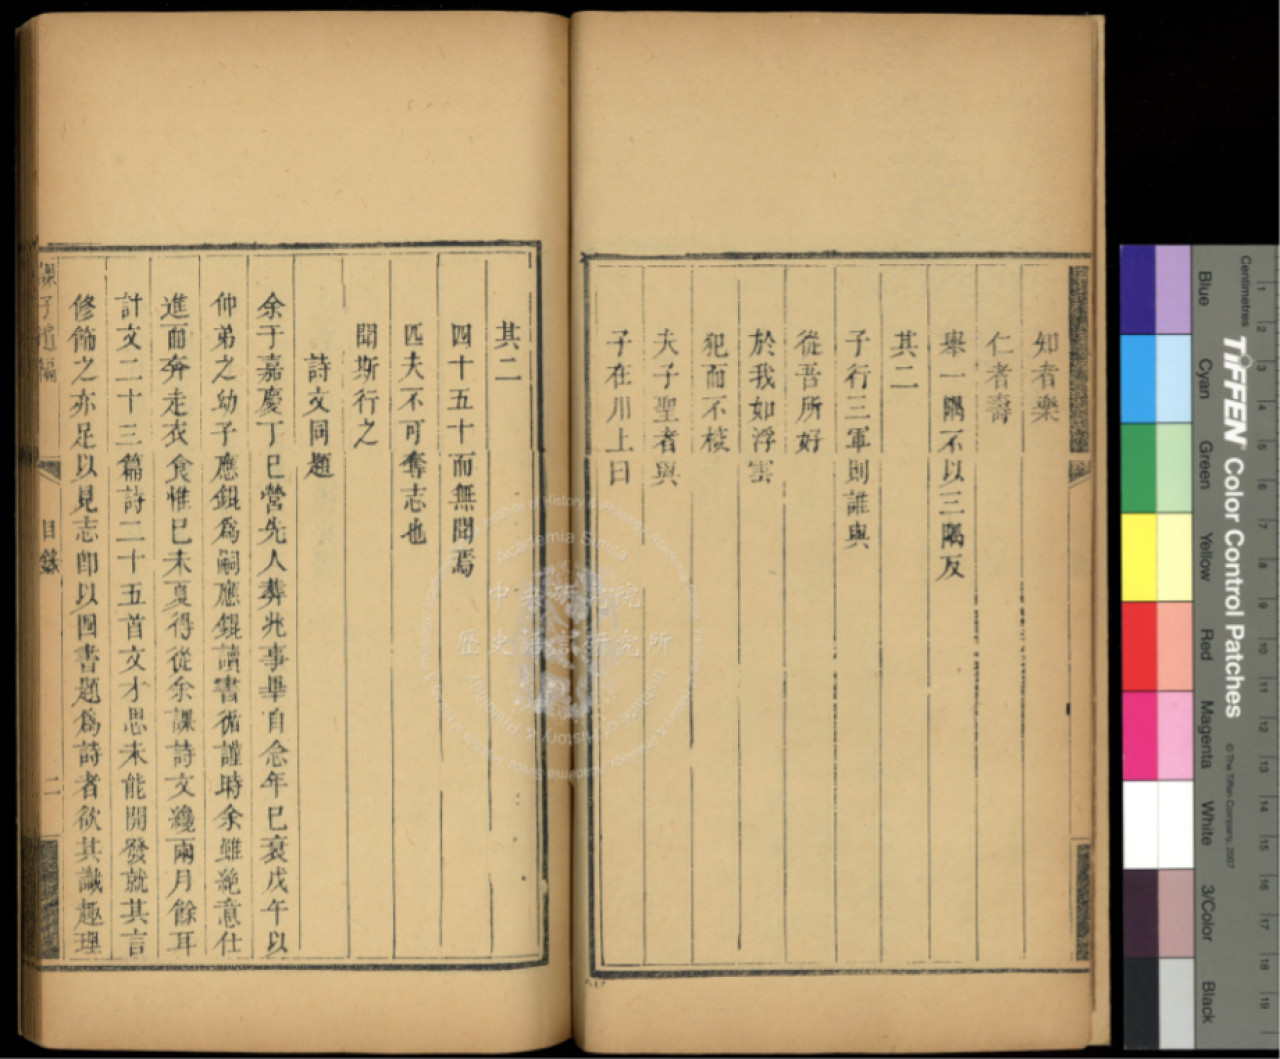 知者樂
仁者壽
舉一隅不以三隅反
其二
子行三軍則誰與
從吾所好
於我如浮雲
犯而不校
夫子聖者與
子在川上曰
其二
四十五十而無聞焉
匹夫不可奪志也
聞斯行之
詩文同題
余于嘉慶丁巳營先人葬兆事畢自念年已衰戊午以
仲弟之幼子應錕為嗣應錕讀書循謹時余雖絕意仕
進而奔走衣食惟已未夏得從余課詩文纔兩月餘耳
計文二十三篇詩二十五首文才思未能開發就其言
修飾之亦足以見志即以四書題為詩者欲其識趣理
課子遺編
目錄
二
中央研究院
歷史語言研究所
Academia Sinica
Institute of History & Philology
Centimetres
TIFFEN Color Control Patches
© The Tiffen Company, 2007
Blue
Cyan
Green
Yellow
Red
Magenta
White
3/Color
Black
1
2
3
4
5
6
7
8
9
10
11
12
13
14
15
16
17
18
19